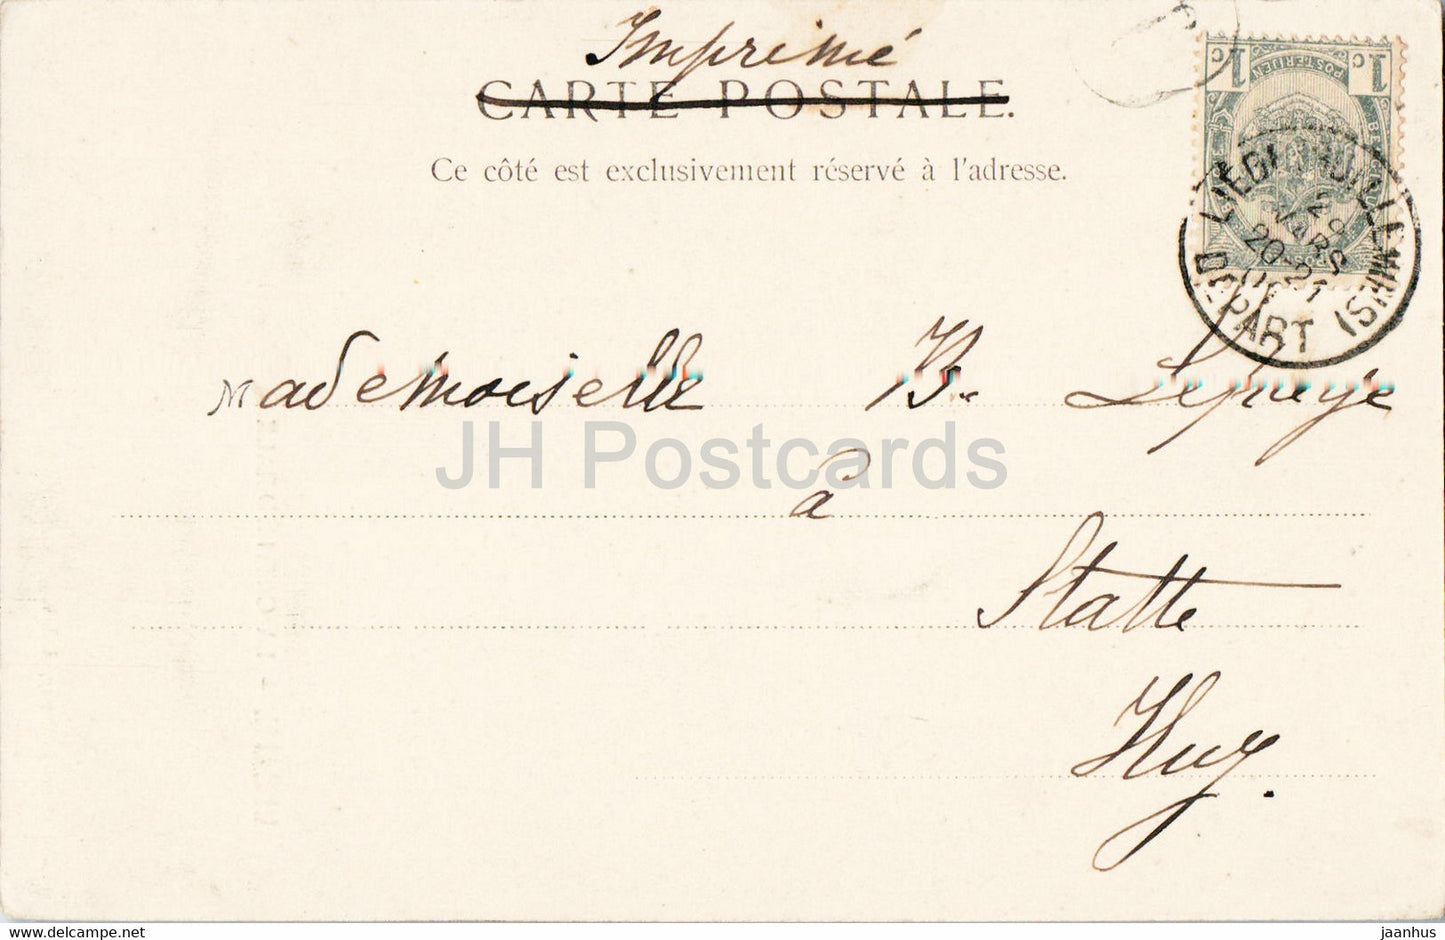 Imprimé
CARTE POSTALE.
Ce côté est exclusivement réservé à l'adresse.
1c 1c
POSTERIJEN
DÉPART
MARS
20-21
Mademoiselle B.
à
Statte
Huy.
JH Postcards
delcampe.net
jaanhus